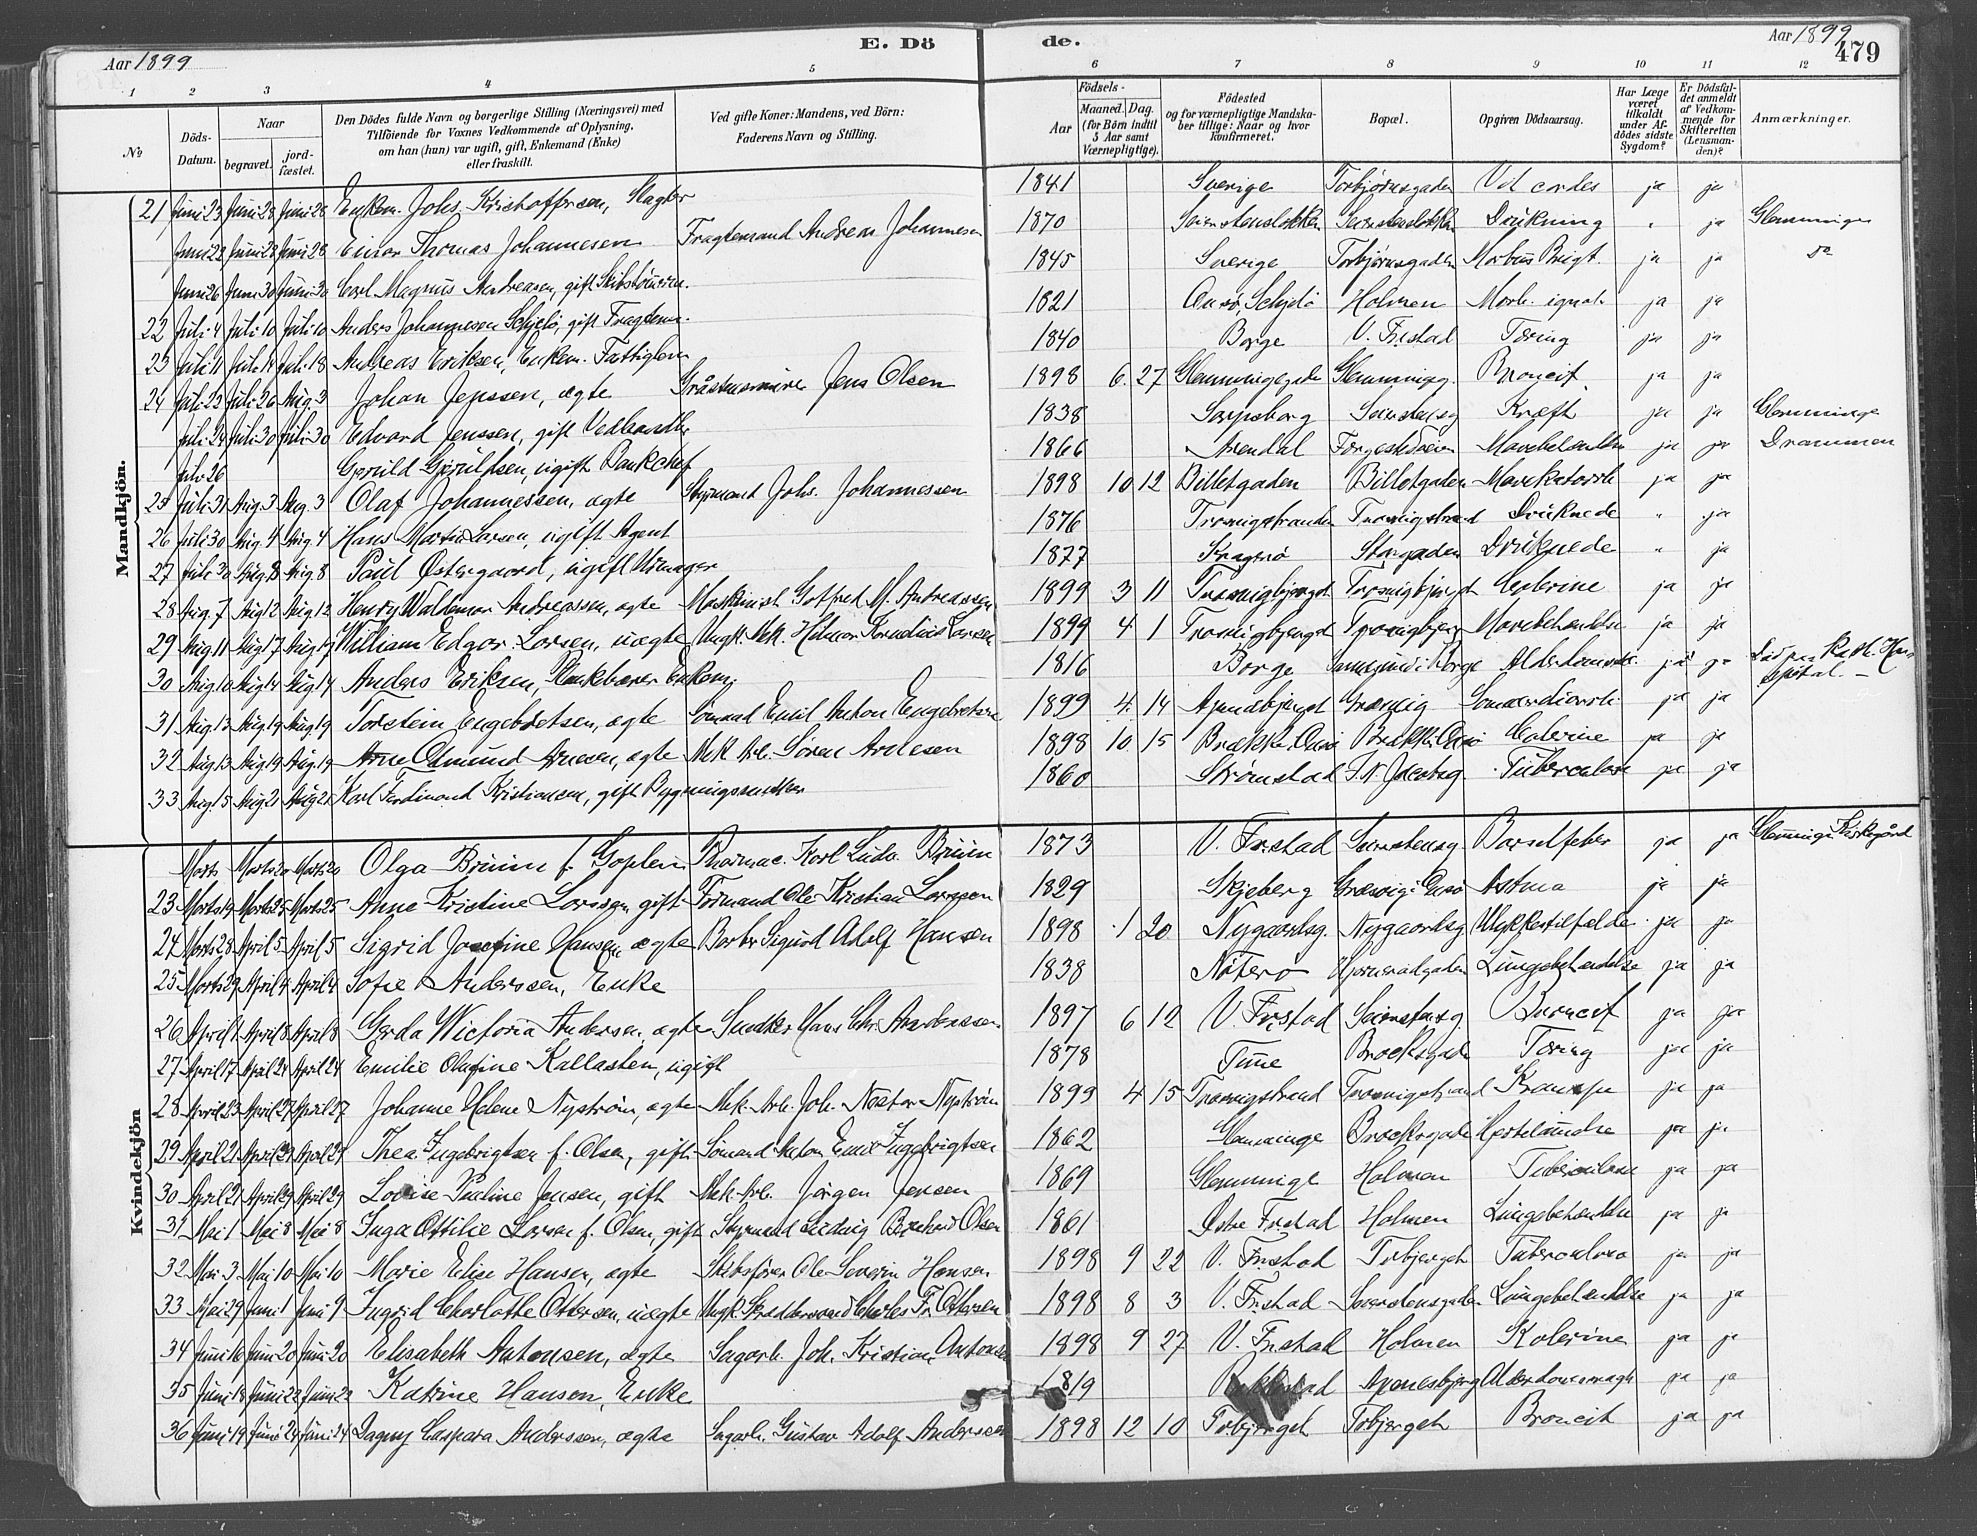 Aar 1899 E. Dö de. Aar 1899 479
1 2 3 4 5 6 7 8 9 10 11 12
№ Döds-Datum. Naar begravet. jordfæstet. Den Dödes fulde Navn og borgerlige Stilling (Næringsvei) med Tilföiende for Voxnes Vedkommende af Oplysning, om han (hun) var ugift, gift, Enkemand (Enke) eller fraskilt. Ved gifte Koner: Mandens, ved Börn: Faderens Navn og Stilling. Födsels- Aar Maaned. Dag. (for Börn indtil 5 Aar samt Værnepligtige). Födested og for værnepligtige Mandskaber tillige: Naar og hvor konfirmeret. Bopæl. Opgiven Dödsaarsag. Har Læge været tilkaldt under Afdödes sidste Sygdom? Er Dödsfaldet anmeldt af Vedkommende for Skifteretten (Lensmanden)? Anmærkninger.
Mandkjön.
21 Juni 23 Juni 28 Juni 28 Enkem. Johs. Kristoffersen, Slagter 1841 Sverige Torbjørnsgaden Vit. cordis ja ja
Juni 22 Juni 28 Juni 28 Einar Thomas Johannesen Fragtemand Andreas Johannesen 1870 Seierstensløkken Seierstensløkken Drukning " ja Glemminge
Juni 26 Juni 30 Juni 30 Carl Magnus Andreasen, gift Skibstømrm. 1845 Sverige Torbjørnsgaden Morbus Brigt. ja ja do
22 Juli 4 Juli 10 Juli 10 Anders Johannesen Schjelø, gift Fragtem. 1821 Onsø, Schjelø Holmen Morb. ignot. ja ja
23 Juli 11 Juli 18 Juli 18 Andreas Eriksen, Enkem. Fattiglem 1840 Borge V. Fr.stad Tæring ja ja
24 Juli 22 Juli 26 Aug. 3 Johan Jenssen, ægte Gråstensmurer Jens Olsen 1898 6. 27 Glemmingegaden Glemmingeg. Broncit. ja ja
Juli 24 Juli 30 Juli 30 Edvard Jenssen, gift Vedhandler 1838 Sarpsborg Seierstensg Kræft ja ja Glemminge
Juli 26 Gjeruld Gjeruldsen, ugift Bankchef 1866 Arendal Færgestedsveien Mavebetændelse ja ja Drammen
25 Juli 31 Aug. 3 Aug. 3 Olaf Johannessen, ægte Styrmand Johs. Johannessen 1898 10 12 Billetgaden Billetgaden Mavekatarrh ja ja
26 Juli 30 Aug. 4 Aug. 4 Hans Martin Larsen, ugift Agent 1876 Trosvigstranden Trosvigstrand Druknede " ja
27 Juli 30 Aug. 8 Aug. 8 Paul Østergaard, ugift Urmager 1877 Kragerø Storgaden Druknede " ja
28 Aug. 7 Aug 12 Aug 12 Henry Waldemar Andreassen, ægte Maskinist Gotfred M. Andreassen 1899 3 11 Trosvigbjerget Trosvigbjerget Colerine ja ja
29 Aug 11 Aug 17 Aug 17 William Edgar Larsen, uægte Ungk. Mek. Hilmar Kornelius Larsen 1899 4 1 Trosvigbjerget Trosvigbjerg Mavebetændelse ja ja
30 Aug 10 Aug 14 Aug 14 Anders Eriksen, Enkem. 1816 Borge Borge Alderdomssv. ja ja Død paa Kath. Hospital.
31 Aug. 13 Aug 19 Aug 19 Torstein Engebretsen, ægte Sømand Emil Anton Engebretsen 1899 4. 14 Apenesbjerget Græsvig Sommerdiarrh ja ja
32 Aug 13 Aug 19 Aug. 19 Arne Edmund Arnesen, ægte Mek. Arb. Søren Arnesen 1898 10 15 Brække, Onsø Brække, Onsø Colerine ja ja
33 Aug. 15 Aug 21 Aug 21 Karl Ferdinand Kristiansen, gift Bygningssnedker 1860 Strømstad Tuberculose ja ja
Kvindekjön
Marts Marts 20 Marts 20 Olga Bruun f. Goplen Pharmac. Karl Ludv. Bruun 1873 V. Fr.stad Seierstensg. Barselfeber ja ja Glemminge Kirkegård
23 Marts 19 Marts 25 Marts 25 Anne Kristine Larssen gift Formand Ole Kristian Larssen 1829 Skjeberg Græsvig i Onsø Astma ja ja
24 Marts 28 April 5 April 5 Sigrid Josefine Hansen, ægte Barber Sigurd Adolf Hansen 1898 1 20 Nygaardsg. Nygaardsg Ulykkestilfælde ja ja
25 Marts 29 April 4 April 4 Sofie Anderssen, Enke 1838 Nøterø Lungebetændelse ja ja
26 April 1 April 8 April 8 Gerda Wictoria Andersen, ægte Snedker Hans Chr. Anderssen 1897 6 12 V. Fr.stad Seierstensg. Broncit ja ja
27 April 17 April 24 April 24 Emilie Olufine Kallasten, ugift 1878 Tune Brocksgade Tæring ja ja
28 April 23 April 27 April 27 Johanne Helene Nystrøm, ægte Mek. Arb. Joh. Nestor Nystrøm 1899 4 15 Trosvigstrand Trosvigstrand Krampe ja ja
29 April 21 April 29 April 29 Thea Ingebrigtsen f. Olsen, gift Sømand Anton Emil Ingebrigtsen 1862 Glemminge Brocksgade Hjertelamdse ja ja
30 April 21 April 29 April 29 Lovise Pauline Jensen, gift Mek. Arb. Jørgen Jensen 1869 Glemminge Holmen Tuberculose ja ja
31 Mai 1 Mai 8 Mai 8 Inga Ottilie Larsen f. Olsen, gift Styrmand Ludvig Bernhard Olsen 1861 Østre Fr.stad Holmen Lungebetændelse ja ja
32 Mai 3 Mai 10 Mai 10 Marie Elise Hansen, ægte Skibsfører Ole Severin Hansen 1898 9 22 V. Fr.stad Torbjerget Tuberculose ja ja
33 Mai 29 Juni 1 Juni 9 Ingrid Charlotte Ottersen, uægte Ungk. Skræddersvend Charles Fr. Ottersen 1898 8 3 V. Fr.stad Seierstensgaden Lungebetændelse ja ja
34 Juni 16 Juni 20 Juni 20 Elisabeth Antonsen, ægte Sagarb. Joh. Kristian Antonsen 1898 9 27 V. Fr.stad Holmen Kolerine ja ja
35 Juni 18 Juni 22 Juni 22 Katrine Hansen, Enke 1819 Apenesbjerg Alderdomssvagh ja ja
36 Juni 19 Juni 24 Juni 24 Dagny Caspara Anderssen, ægte Sagarb. Gustav Adolf Andersen 1898 12 10 Torbjerget Torbjerget Broncit ja ja